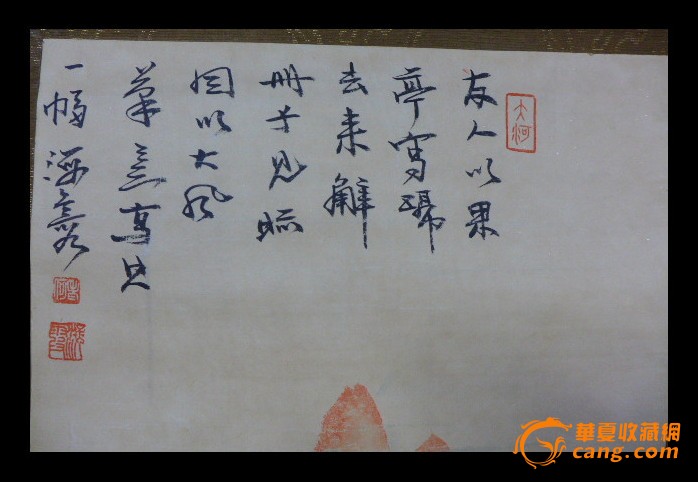 大河
友人以果
亭寫歸
去来辭
册子見
因以大風
筆意寫此
一幅
華夏收藏網
cang.com